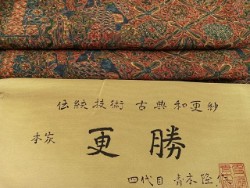 伝統技術 古典和更紗
本家 更勝
四代目 青木